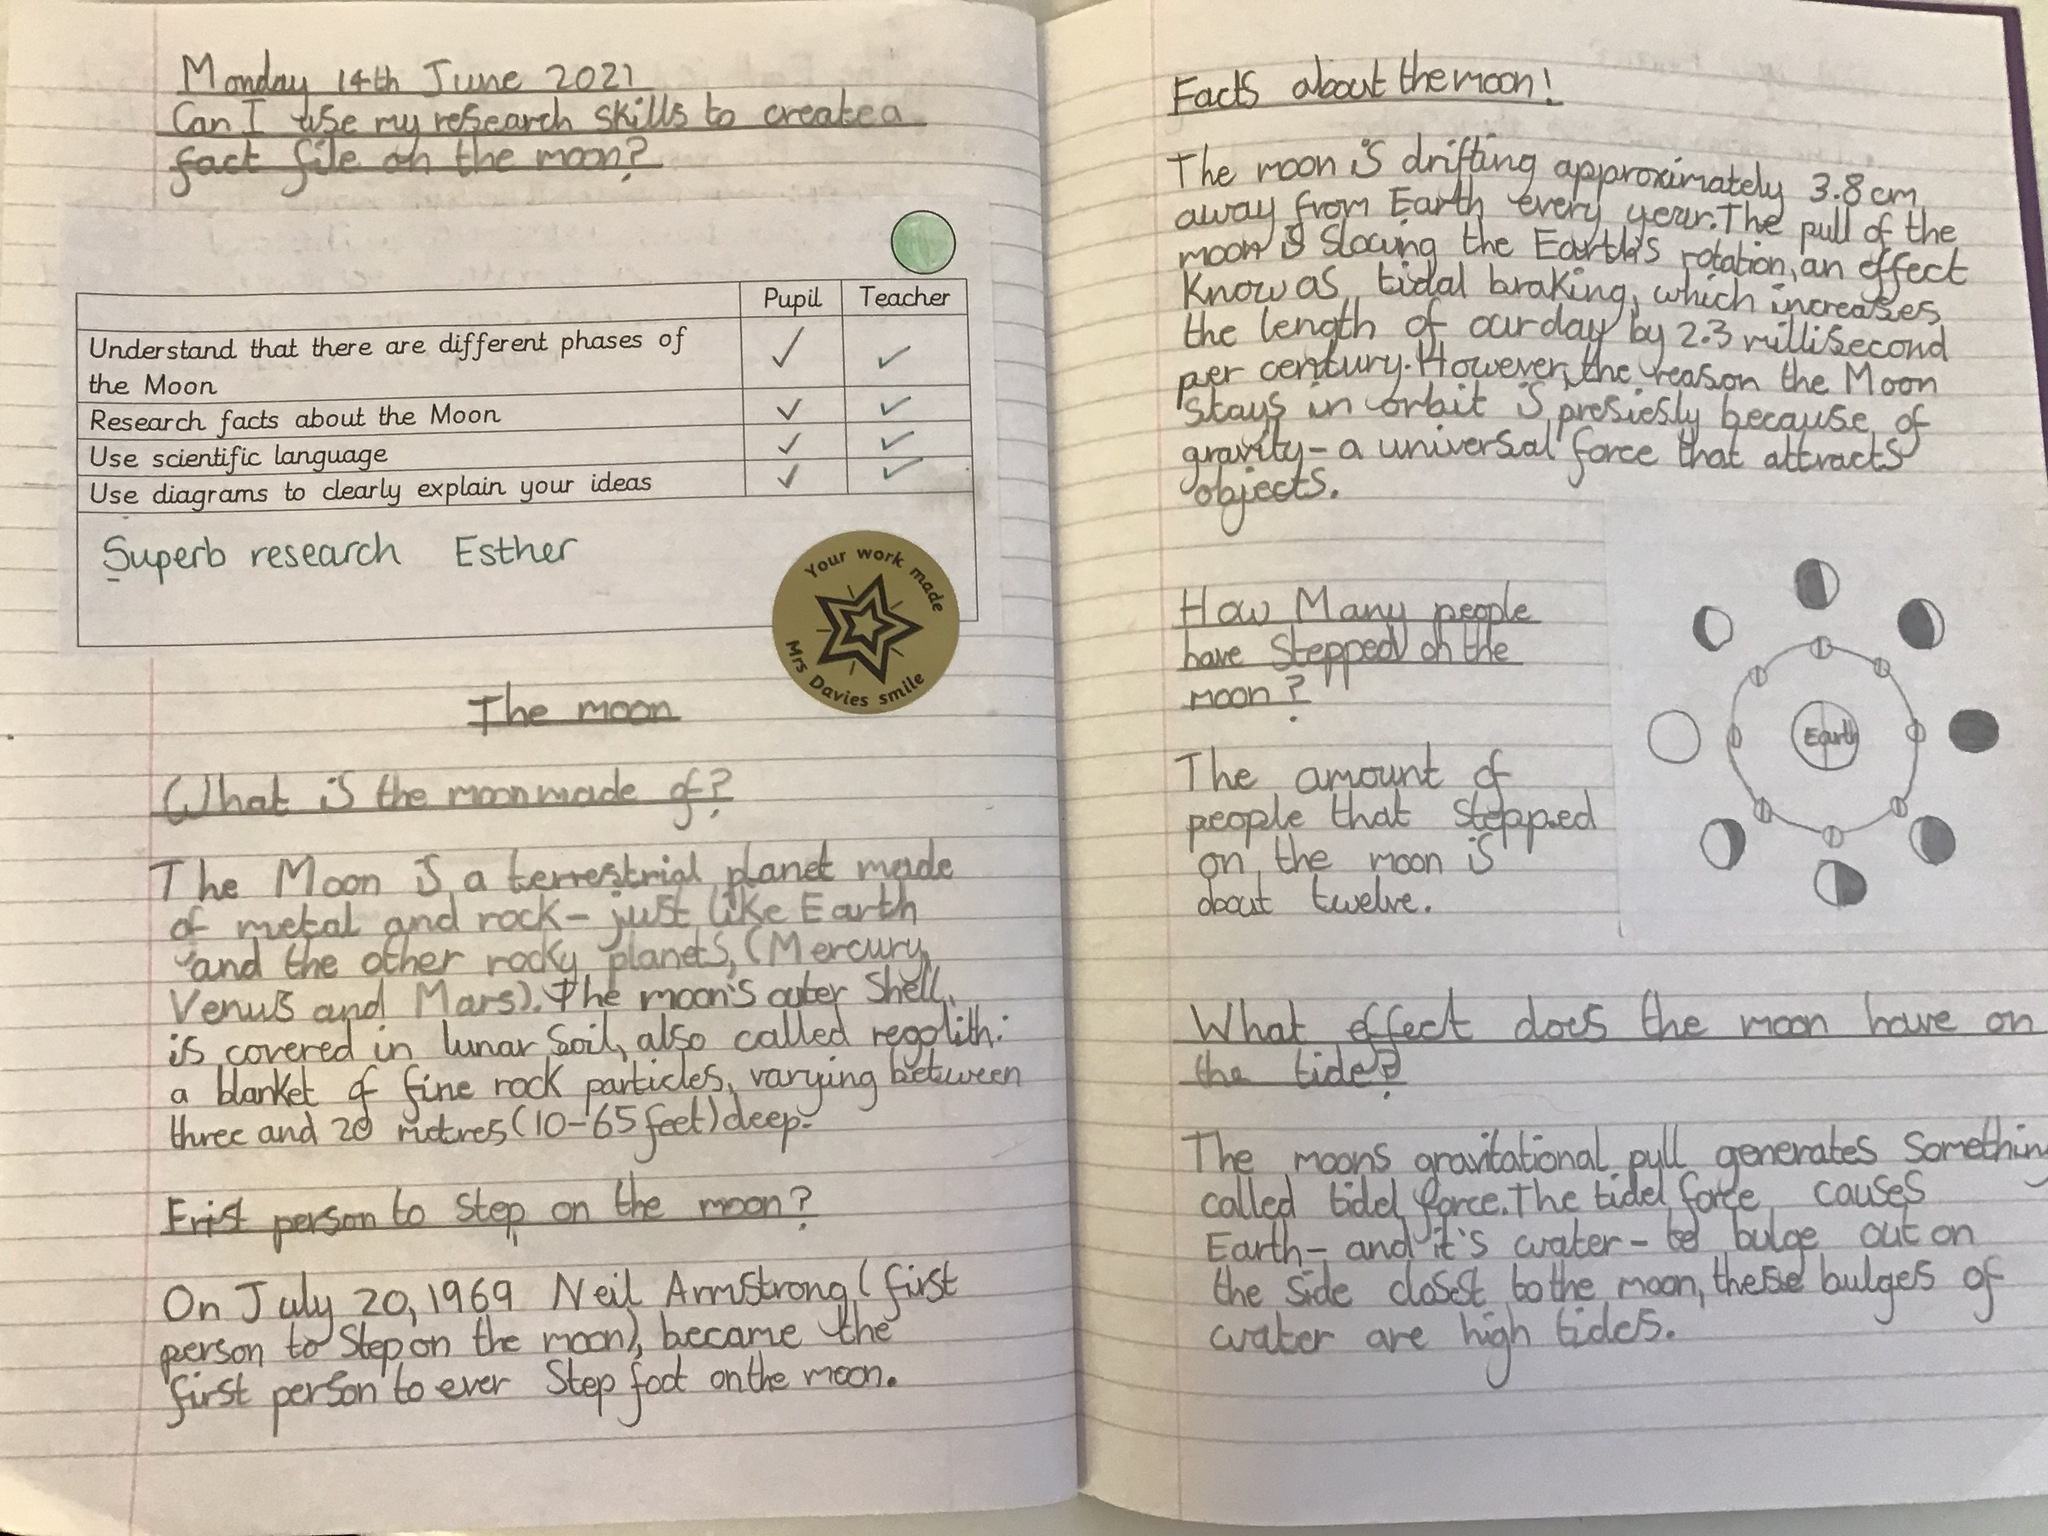 Monday 14th June 2021
Can I use my research skills to create a
fact file on the moon?
Pupil Teacher
Understand that there are different phases of
the Moon
Research facts about the Moon
Use scientific language
Use diagrams to clearly explain your ideas
Superb research Esther
Your work made
Mrs Davies smile
The moon
What is the moon made of?
The Moon is a terrestrial planet made
of metal and rock - just like Earth
and the other rocky planets, (Mercury,
Venus and Mars). The moon's outer shell,
is covered in lunar soil, also called regolith:
a blanket of fine rock particles, varying between
three and 20 metres (10-65 feet) deep.
Frist person to step on the moon?
On July 20, 1969 Neil Armstrong (first
person to step on the moon), became the
first person to ever step foot on the moon.
Facts about the moon!
The moon is drifting approximately 3.8cm
away from Earth every year. The pull of the
moon is slowing the Earth's rotation, an effect
know as tidal braking, which increases
the length of our day by 2.3 millisecond
per century. However, the reason the Moon
stays in orbit is presiesly because of
gravity - a universal force that attracts
objects.
How Many people
have stepped on the
moon?
Earth
The amount of
people that stepped
on the moon is
about twelve.
What effect does the moon have on
the tide?
The moons gravitational pull generates something
called tidel force. The tidel force causes
Earth - and it's water - to bulge out on
the side closest to the moon, these bulges of
water are high tides.